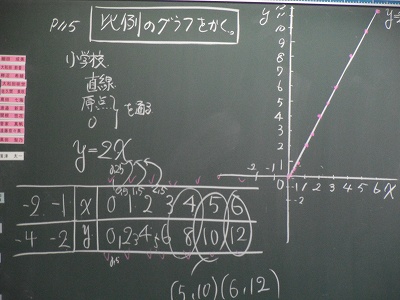 P115 比例のグラフをかく。
小学校
直線
原点
0
を通る
y=2x
0.5 1.5 2.5
-2 -1 x 0 1 2 3 4 5 6
-4 -2 y 0,2,3 4,5 6 8 10 12
0.5
(5,10)(6,12)
y
12
11
10
9
8
7
6
5
4
3
2
1
-2 -1 0 1 2 3 4 5 6 x
-1
-2
y=